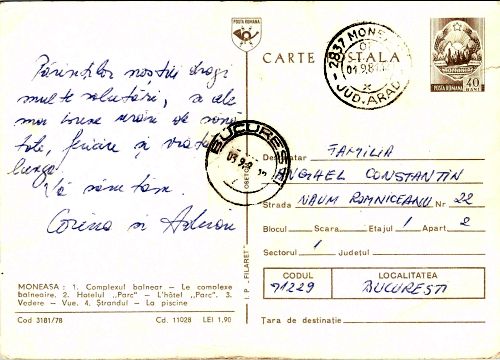 POSTA ROMANA
CARTE POSTALA
2837 MONEASA
01.9.81
JUD. ARAD
POSTA ROMANA 40 BANI
Părinților noștri dragi
multe salutări, și cele
mai bune urări de sănă
tate, fericire și viață
lungă
Vă sărutăm.
Corina și Adrian
BUCUREȘTI
Destinatar FAMILIA
ANGHEL CONSTANTIN
Strada NAUM RÎMNICEANU Nr. 22
Blocul Scara Etajul 1 Apart 2
Sectorul 1 Județul
CODUL LOCALITATEA
71229 BUCUREȘTI
Țara de destinație
I. P. „FILARET"
MONEASA: 1. Complexul balnear — Le complexe
balneaire. 2. Hotelul „Parc" — L'hôtel „Parc". 3.
Vedere — Vue. 4. Ștrandul — La piscine
Cod 3181/78 Cd. 11028 LEI 1,90